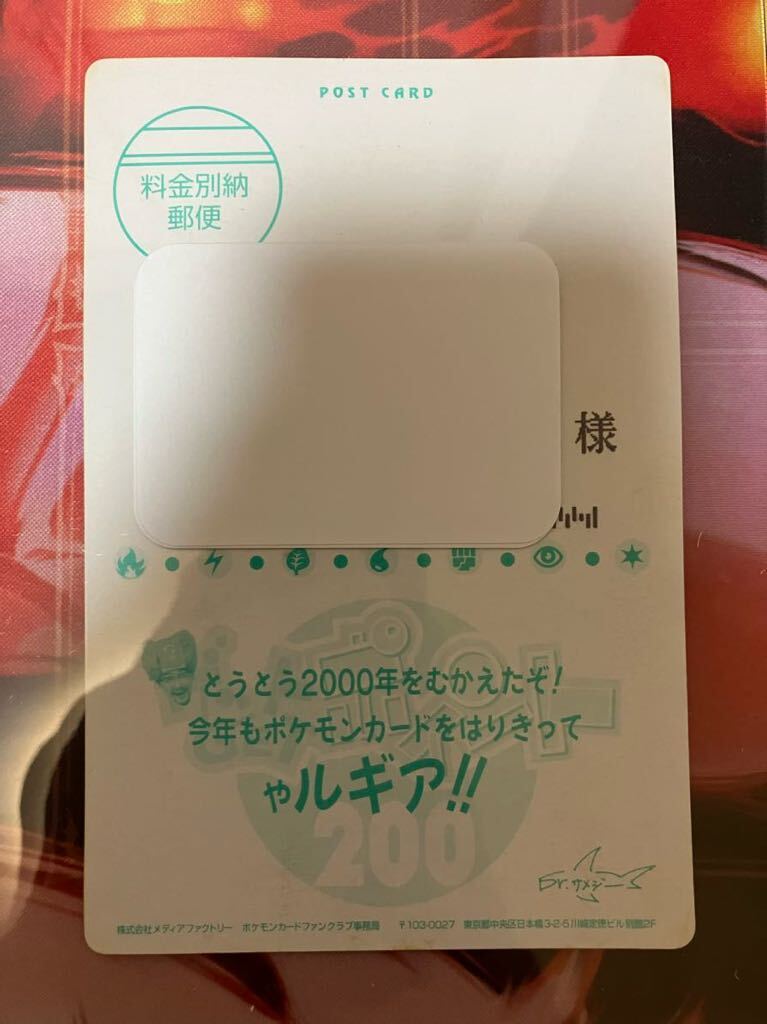 POST CARD
料金別納
郵便
様
とうとう2000年をむかえたぞ!
今年もポケモンカードをはりきって
やルギア!!
200
Dr.サメジー
株式会社メディアファクトリー ポケモンカードファンクラブ事務局 〒103-0027 東京都中央区日本橋3-2-5川崎定徳ビル別館2F